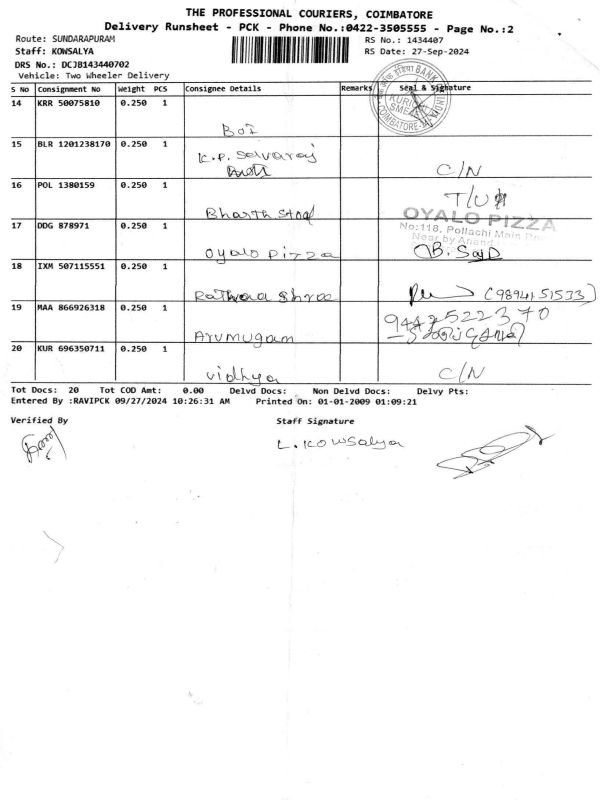 THE PROFESSIONAL COURIERS, COIMBATORE
Delivery Runsheet - PCK - Phone No.:0422-3505555 - Page No.:2
Route: SUNDARAPURAM
RS No.: 1434407
Staff: KOWSALYA
RS Date: 27-Sep-2024
DRS No.: DCJB143440702
Vehicle: Two Wheeler Delivery
S No Consignment No Weight PCS Consignee Details Remarks Seal & Signature
14 KRR 50075810 0.250 1
BOI
BANK INDIA
COIMBATORE
15 BLR 1201238170 0.250 1
K.P. Selvaraj
C/N
16 POL 1380159 0.250 1
Bharth Steel
T/U
17 DDG 878971 0.250 1
OYALO PIZZA
No:118, Pollachi Main
Near by Anand
oyalo pizza
B. Sajo
18 IXM 507115551 0.250 1
Rathna Shree
(98941 51533)
19 MAA 866926318 0.250 1
Arumugam
20 KUR 696350711 0.250 1
vidhya
C/N
Tot Docs: 20 Tot COD Amt: 0.00 Delvd Docs: Non Delvd Docs: Delvy Pts:
Entered By :RAVIPCK 09/27/2024 10:26:31 AM Printed On: 01-01-2009 01:09:21
Verified By
Staff Signature
L. Kowsalya